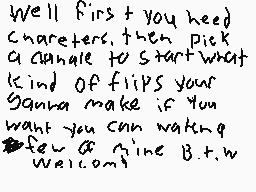 Well first you need
chareters, then pick
a cannale to start what
kind of flips your
Ganna make if you
want you can wateng
few of mine B.t.w
Welcom!